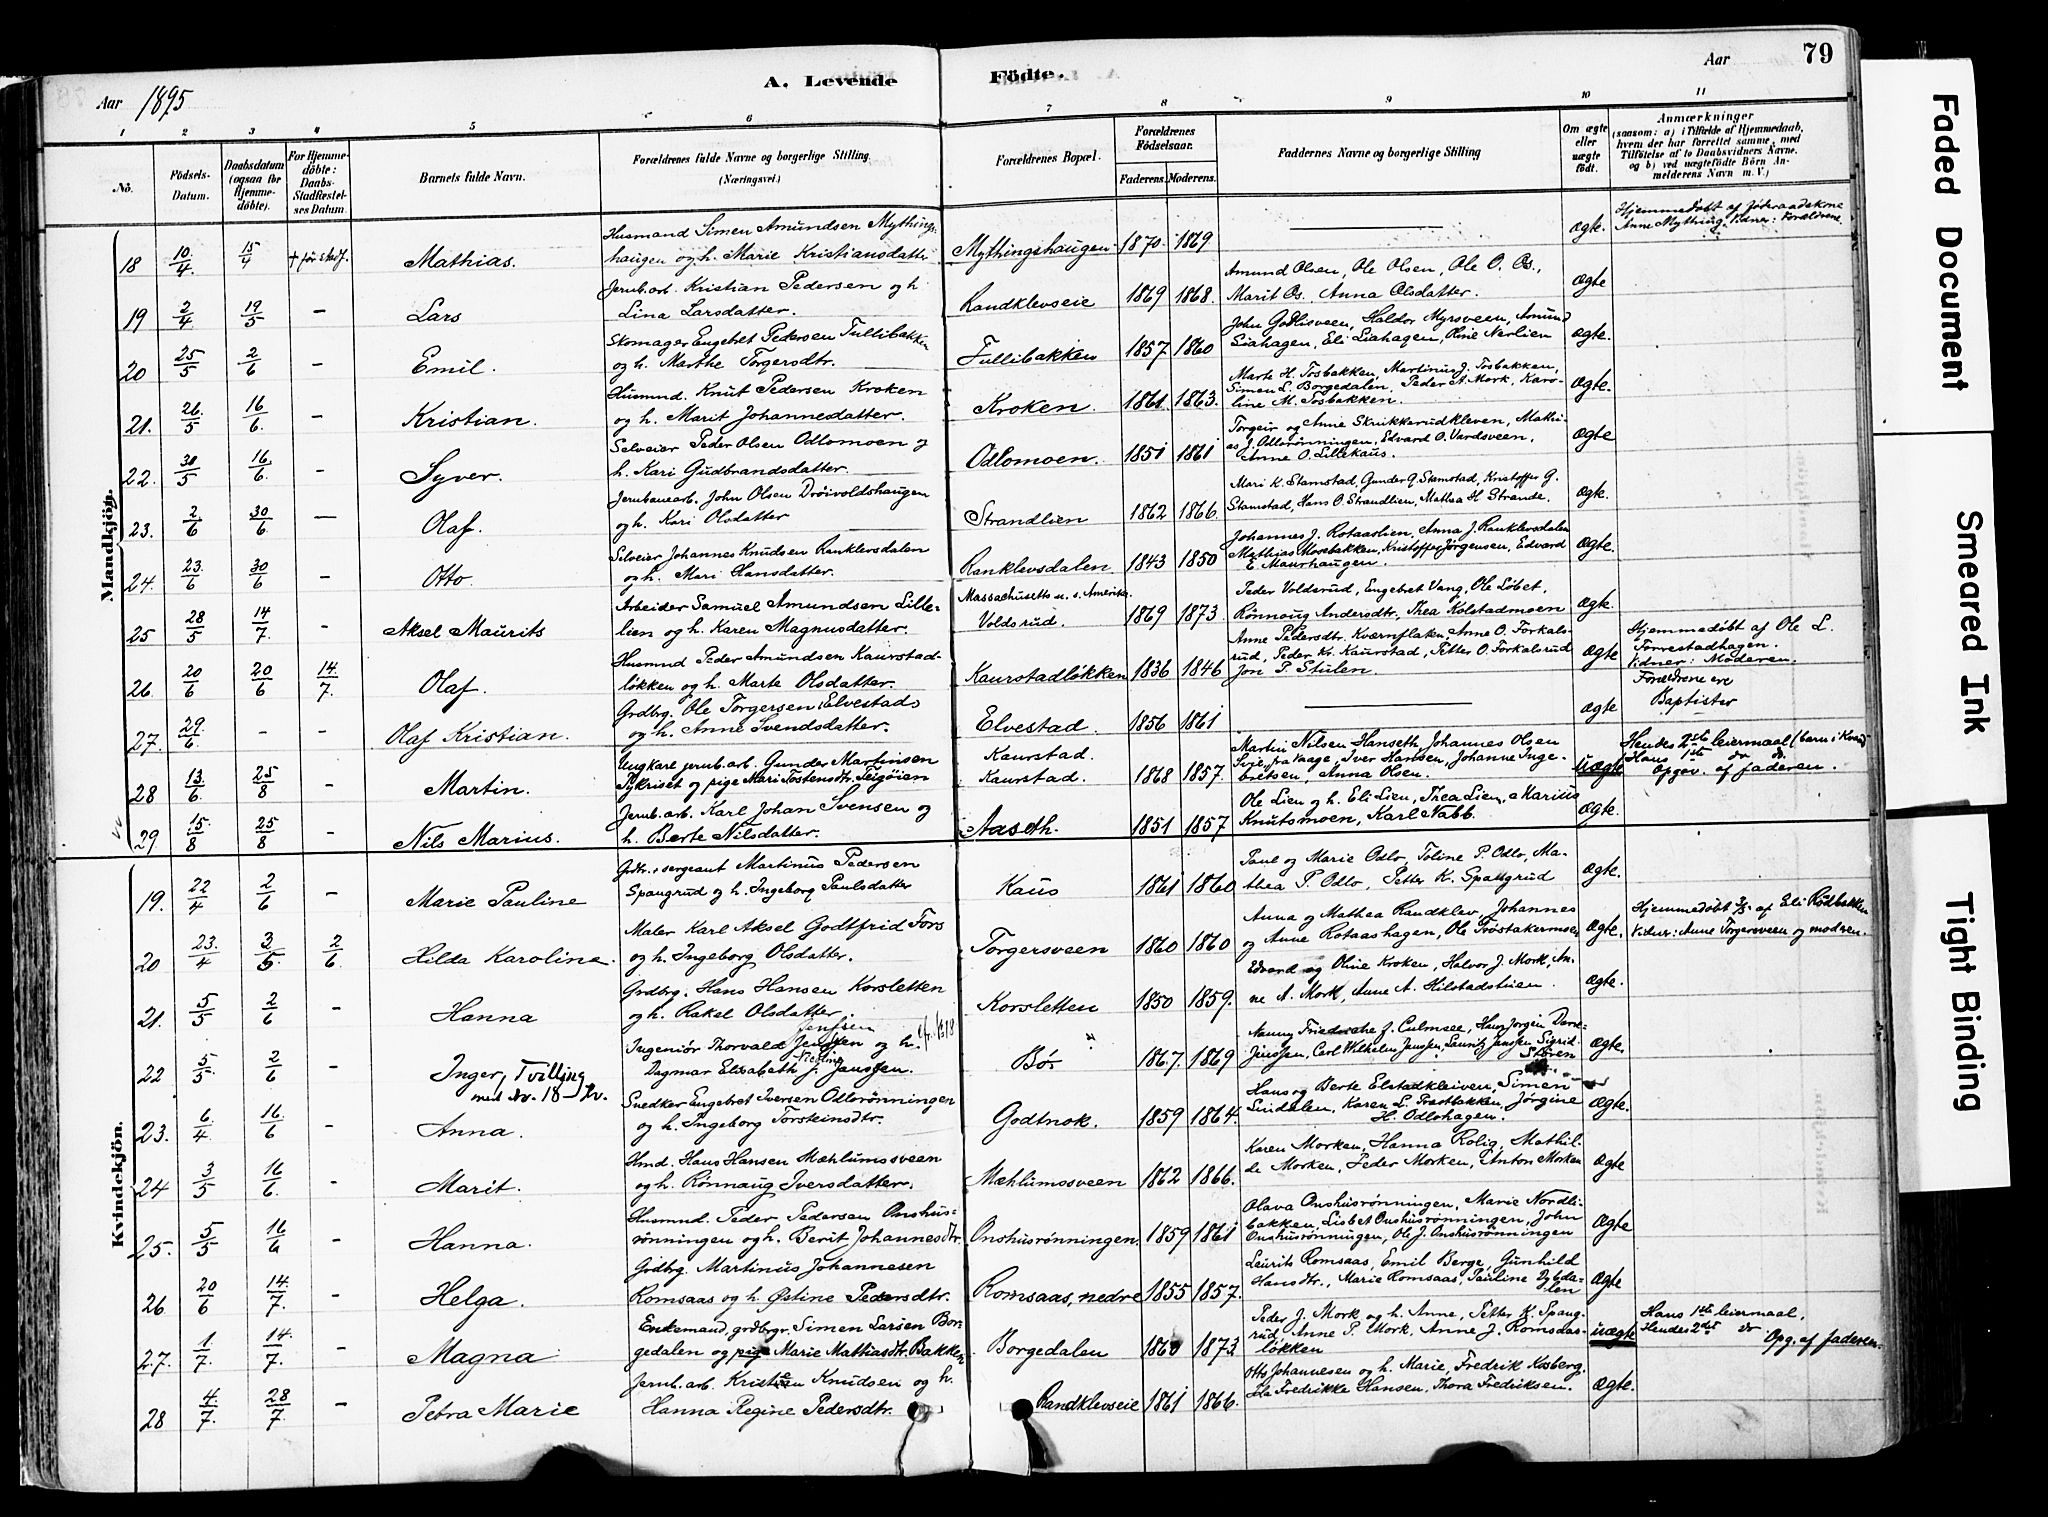 79
Aar 1895
A. Levende Födte.
Aar
1 2 3 4 5 6 7 8 9 10 11
No.
Födsels-Datum.
Daabsdatum (ogsaa for Hjemmedöbte).
For Hjemmedöbte: Daabs-Stadfæstelses Datum.
Barnets fulde Navn.
Forældrenes fulde Navne og borgerlige Stilling. (Næringsvei.)
Forældrenes Bopæl.
Forældrenes Födselsaar. Faderens. Moderens.
Faddernes Navne og borgerlige Stilling
Om ægte eller uægte födt.
Anmærkninger
(saasom: a) i Tilfælde af Hjemmedaab, hvem der har forrettet samme, med Tilföielse af to Daabsvidners Navne. og b) ved uægtefödte Börn Anmelderens Navn m. V.)
Mandkjøn.
18 10/4 15/4 + før stadf. Mathias. Husmand Simen Amundsen Mythingshaugen og h. Marie Kristiansdatter Mythingshaugen 1870 1869 ægte. Hjemmedøbt af Anne Mything. Forældrene
19 2/4 19/5 – Lars Jernb.arb. Kristian Pedersen og h. Lina Larsdatter. Randklevseie 1869 1868. Amund Olsen, Ole Olsen, Ole O. Os., Marit Os. Anna Olsdatter. ægte
20 25/5 2/6 – Emil. Skomager Engebret Pedersen Tullibakken og h. Marthe Torgersdtr. Tullibakken 1857 1860 John Haldor Myrsveen, Amund Liahagen, Eli Liahagen, Oline Nerlien ægte.
21. 26/5 16/6 – Kristian. Husmd. Knut Pedersen Kroken og h. Marit Johannesdatter. Kroken. 1861 1863. Marte H. Tosbakken, Martinus J. Tosbakken, Simen L. Borgedalen, Peder A. Mork, Karoline M. Tosbakken. ægte
22. 30/5 16/6 – Syver. Selveier Peder Olsen Odlomoen og h. Kari Gudbrandsdatter. Odlomoen. 1851 1861 Torgeir og Anne Skrukkerudkleven, Mathias J. Odlorønningen, Edvard O. Vardsveen, Anne O. Lillekaus. ægte
23. 2/6 30/6 – Olaf. Jernbanearb. John Olsen Drøivoldshaugen og h. Kari Olsdatter Strandlien 1862 1866. Mari K. Stamstad, Gunder G. Stamstad, Kristoffer G. Stamstad, Hans O. Strandlien, Mathea H. Strande. ægte.
24. 23/6 30/6 – Otto Selveier Johannes Knudsen Ranklevsdalen og h. Mari Hansdatter. Ranklevsdalen 1843 1850 Johannes J. Rotaaslien, Anna J. Ranklevsdalen Mathias Kristoffer Jørgensen, Edvard E. Maurhaugen. ægte.
25 28/5 14/7 – Aksel Maurits Arbeider Samuel Amundsen Lillelien og h. Karen Magnusdatter. Massachusetts u. s. Amerika. Voldsrud. 1869 1873 Peder Voldsrud, Engebret Vang, Ole Løbet, Rønnaug Andersdtr, Thea Kolstadmoen ægte.
26. 20/6 20/6 14/7 Olaf. Husmd Peder Amundsen Kaurstadløkken og h. Marte Olsdatter. Kaurstadløkken 1836 1846 Anne Pedersdtr. Kværnflaten, Anne O. Forkalsrud, Peder Kr. Kaurstad, Petter O. Forkalsrud Jon P. Stulen. ægte Hjemmedøbt af Ole L. Forrestadhagen. Vidner: Moderen.
27. 29/6 – – Olaf Kristian. Grdbrg. Ole Torgersen Elvestad og h. Anne Svendsdatter. Elvestad 1856 1861 ægte Forældrene ere Baptister
28 13/6 25/8 – Martin. Ungkarl jernb.arb. Gunder Martinsen og pige Mari Tostensdtr. Kaurstad. Kaurstad. 1868 1857. Martin Nilsen Hanseth, Johannes Olsen fra Vaage, Iver Hansen, Johanne Ingebretsen, Anna Olsen. uægte Hendes 2det leiermaal (barn i Hans 1ste do do. Opgev. af faderen.
29 15/8 25/8 – Nils Marius. Jernb. arb. Karl Johan Svensen og h. Berte Nilsdatter. Aaseth. 1851 1857 Ole Lien og h. Eli Lien, Thea Lien, Marius Knutsmoen, Karl Nabb. ægte.
Kvindekjön.
19. 22/4 2/6 – Marie Pauline Grdbr. sergeant Martinus Pedersen Spangrud og h. Ingeborg Paulsdatter Kaus 1861 1860 Paul og Marie Odlo, Toline P. Odlo, Mathea P. Odlo, Petter K. Spangrud ægte.
20 23/4 3/5 2/6 Hilda Karoline. Maler Karl Aksel Godtfrid Fors og h. Ingeborg Olsdatter. Torgersveen 1860 1860 Anna og Mathea Randklev, Johannes og Anne Rotaashagen, Ole ægte. Hjemmedøbt 3/5 af Eli Rødbakken Vidner: Anne Torgersveen og modren.
21. 5/5 2/6 – Hanna Grdbrg. Hans Hansen Korsletten og h. Rakel Olsdatter. Korsletten 1850 1859. Edvard og Oline Kroken, Halvor J. Mork, Anne A. Mork, Anne A. Hilstadstuen. ægte.
22 5/5 2/6 – Inger, Tvilling med No. 18 Ingeniør Thorvald Jenssen og h. Dagmar Elisabeth f. Janssen. Bør 1867. 1869 Nanny Friedsche f. Culmsee, Hans Jørgen Jenssen, Carl Wilhelm Janssen, Lauritz Janssen, Sigrid Støren ægte.
23. 6/4 16/6 – Anna. Snedker Engebret Iversen Odlorønningen og h. Ingeborg Torsteinsdtr. Godtnok. 1859 1864. Hans og Berte Elstadkleiven, Simen Lindalen, Karen L. Jørgine H. Odlohagen. ægte.
24 3/5 16/6 – Marit. Hmd. Hans Hansen Mæhlumssveen og h. Rønnaug Iversdatter. Mæhlumssveen 1862 1866. Karen Morken, Hanna Rolig, Mathilde Morken, Peder Morken, Anton Morken ægte
25. 5/5 16/6 – Hanna. Husmd. Peder Pedersen Onshusrønningen og h. Berit Johannesdtr. Onshusrønningen. 1859 1861 Olava Onshusrønningen, Marie Nordlibakken, Lisbet Onshusrønningen, John Onshusrønningen, Ole J. Onshusrønningen ægte
26 20/6 14/7. – Helga. Grdbrg. Martinus Johannesen Romsaas og h. Østine Pedersdtr. Romsaas, nedre 1855 1857. Laurits Romsaas, Emil Berge, Gunhild Hansdtr., Marie Romsaas, Pauline Dybdalen ægte
27. 1/7 14/7. – Magna Enkemand, grdbrgr. Simen Larsen Borgedalen og pige Marie Mathiasdtr. Bakken Borgedalen 1860 1873 Peder J. Mork og h. Anne, Petter K. Spangrud, Anne P. Mork, Anne J. Romsaasløkken uægte Hans 1ste leiermaal, Hendes 2det do Opg. af faderen.
28 4/7 28/7. – Petra Marie Jernb. arb. Kristian Knudsen og h. Hanna Regine Pedersdtr. Randklevseie 1861 1866. Otto Johannesen og h. Marie, Fredrik Kosberg. Ida Fredrikke Hansen, Thora Fredriksen. ægte.
Faded Document
Smeared Ink
Tight Binding